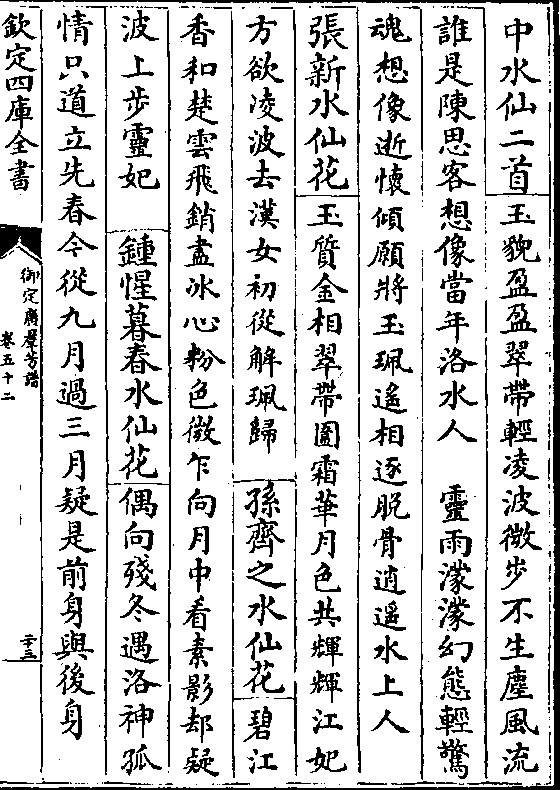 中水仙二首玉貌盈盈翠帶輕凌波微步不生塵風流
誰是陳思客想像當年洛水人　靈雨濛濛幻態輕驚
魂想像逝懷傾願將玉珮遙相逐脫骨逍遥水上人
張新水仙花玉質金相翠帶圍霜華月色共輝輝江妃
方欲凌波去漢女初從解珮歸　孫齊之水仙花碧江
香和楚雲飛銷盡冰心粉色微乍向月中看素影却疑
波上步靈妃　鍾惺暮春水仙花偶向殘冬遇洛神孤
情只道立先春今從九月過三月疑是前身與後身
欽定四庫全書
御定廣羣芳譜
卷五十二
二十三